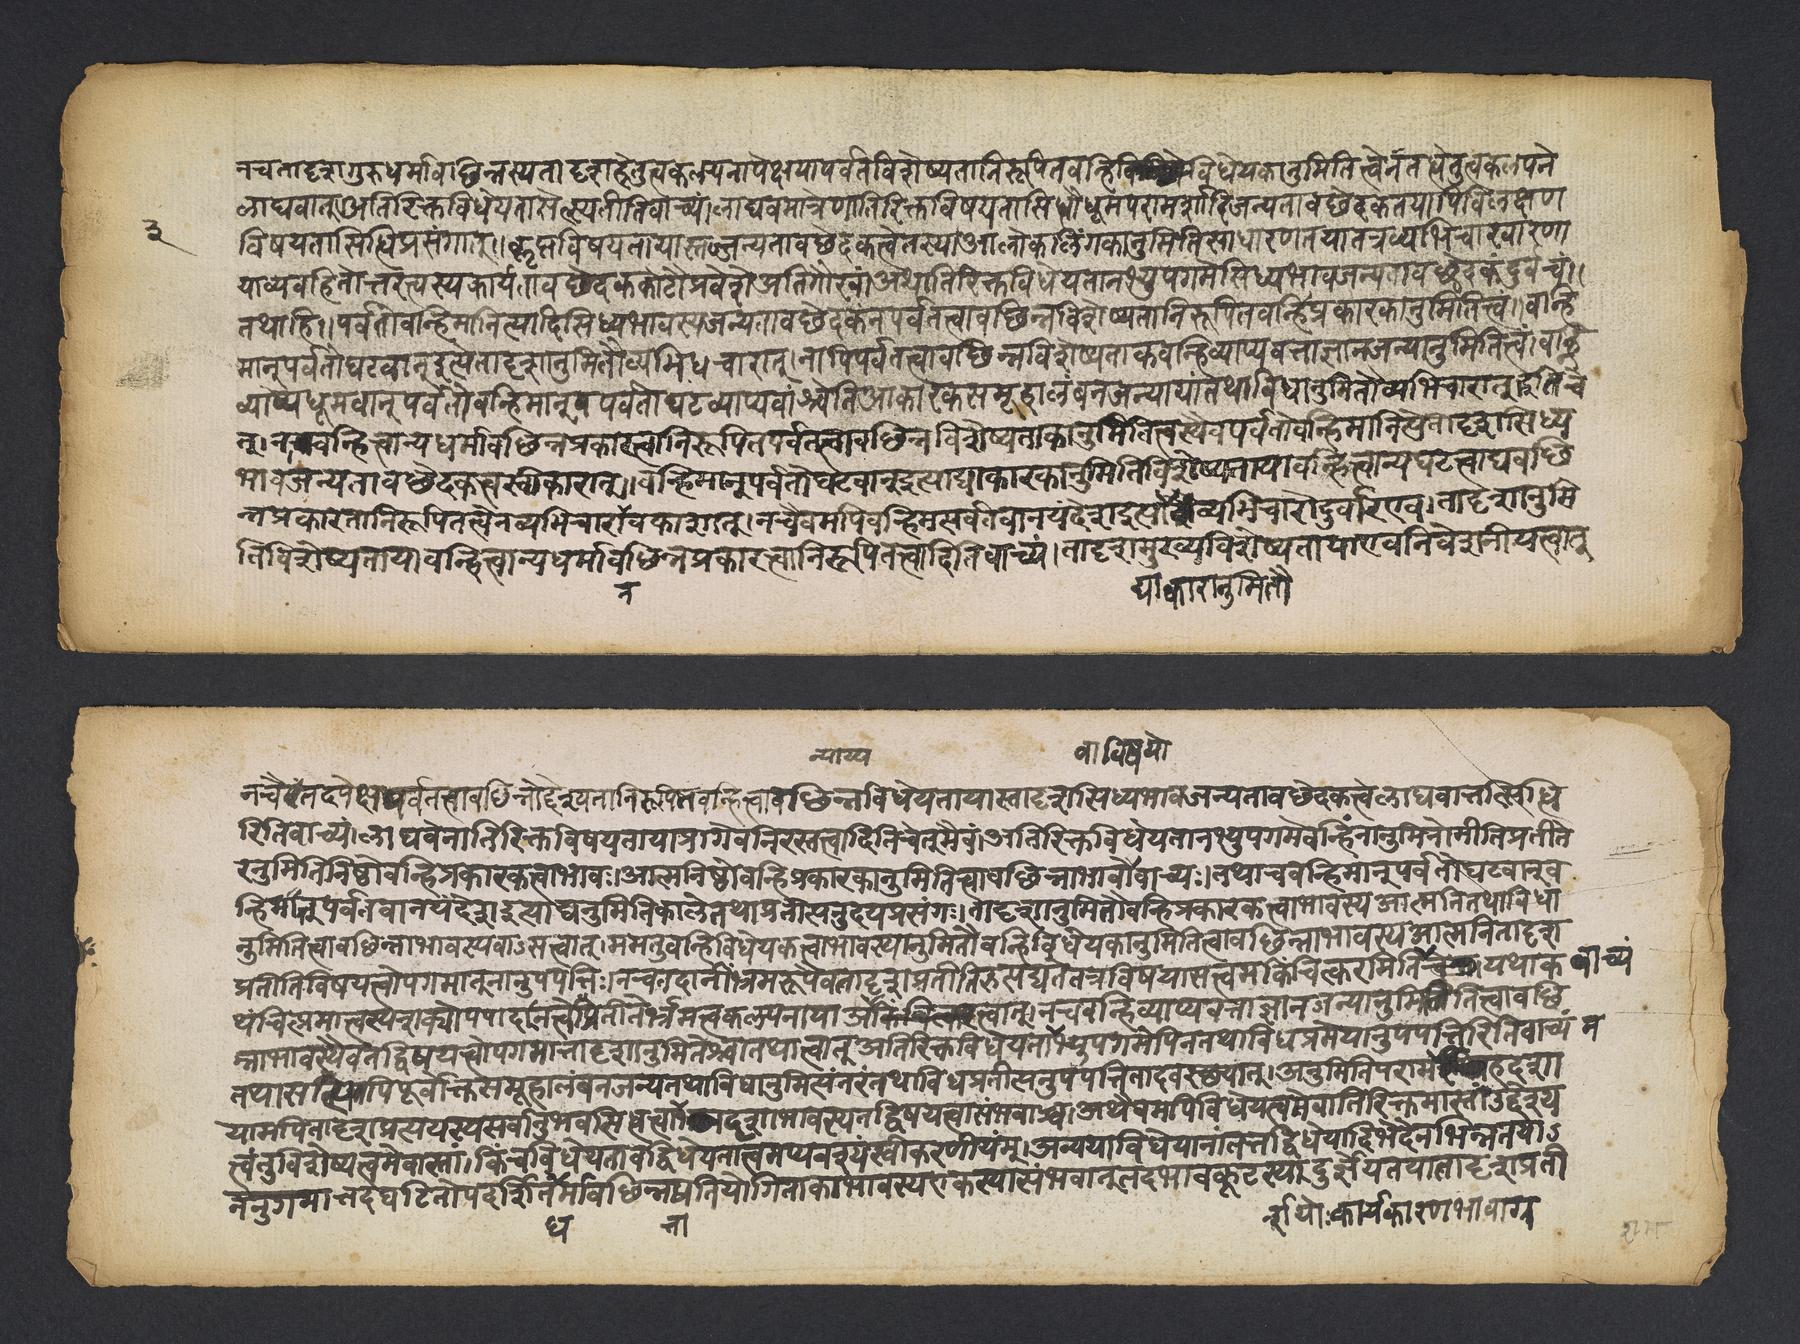 नचतादृशगुरुधर्मावछिन्नस्यतादृशहेतुत्वकल्पनापेक्षयापर्वतविशेष्यतानिरूपितवन्हिविधेयकानुमितित्वेनतद्धेतुत्वकल्पने
लाघवात्अतिरिक्तविधेयतासेत्स्यतीतिवाच्यं।लाघवमात्रेणातिरिक्तविषयतासिद्धौधूमपरामर्शादिजन्यतावछेदकतयापिविलक्षण
३
विषयतासिद्धिप्रसंगात्॥कॢप्तविषयतायास्तज्जन्यतावछेदकत्वेतस्याआलोकलिंगकानुमितिसाधारणतयातत्रव्यभिचारवारणा
याव्यवहितोत्तरत्वस्यकार्यतावछेदककोटौप्रवेशेअतिगौरवं।अथातिरिक्तविधेयतानभ्युपगमेसिध्यभावजन्यतावछेदकंदुर्वचं।।
तथाहि।।पर्वतोवन्हिमानित्यादिसिध्यभावस्यजन्यतावछेदकंनपर्वतत्वावछिन्नविशेष्यतानिरूपितवन्हिप्रकारकानुमितित्वं।।वन्हि
मान्पर्वतोघटवान्इत्येतादृशानुमितौव्यभिचारात्।नापिपर्वतत्वावछिन्नविशेष्यताकवन्हिव्याप्यवत्ताज्ञानजन्यानुमितित्वं।वन्हि
व्याप्यधूमवान्पर्वतोवन्हिमान्पर्वतोघटव्याप्यवांश्चेतिआकारकसमूहालंबनजन्यायांतथाविधानुमितौव्यभिचारात्इतिचे
त्।नवन्हित्वान्यधर्मावछिन्नप्रकारत्वानिरूपितपर्वतत्वावछिन्नविशेष्यताकानुमितित्वस्यैवपर्वतोवन्हिमानित्येतादृशसिध्य
भावजन्यतावछेदकत्वस्वीकारात्।।वन्हिमान्पर्वतोघटवान्इत्याद्याकारकानुमितिविशेष्यतायावन्हित्वान्यघटत्वाद्यवछि
न्नप्रकारतानिरूपितत्वेनव्यभिचारानवकाशात्।नचैवमपिवन्हिमत्पर्वतवानयंदेशइत्याव्यभिचारोदुर्वारएव।तादृशानुमि
तिविशेष्यतायावन्हित्वान्यधर्मावछिन्नप्रकारत्वानिरूपितत्वादितिवाच्यं।तादृशमुख्यविशेष्यतायाएवनिवेशनीयत्वात्
न
द्याकारानुमितौ
न्याय्य
वाविषयो
नचैवंतदपेक्षयापर्वतत्वावछिन्नोद्देश्यतानिरूपितवन्हित्वावछिन्नविधेयतायास्तादृशसिध्यभावजन्यतावछेदकत्वेलाघवात्तत्सिद्धि
रितिवाच्यं।लाघवेनातिरिक्तविषयतायाप्रागेवनिरस्तत्वादितिचेत्मैवं।अतिरिक्तविधेयतानभ्युपगमेवन्हिंनानुमिनोमीतिप्रतीते
रनुमितिनिष्ठोवन्हिप्रकारकत्वाभावः।आत्मनिष्ठोवन्हिप्रकारकानुमितित्वावछिन्नाभावोवाच्यः।तथाचवन्हिमान्पर्वतोघटवान्व
न्हिमान्पर्वतवानयंदेशइत्याद्यनुमितिकालेतथाप्रतीत्यनुदयप्रसंगः।तादृशानुमितौवन्हिप्रकारकत्वाभावस्यआत्मनितथाविधा
नुमितित्वावछिन्नाभावस्यवाऽसत्वात्।ममतुवन्हिविधेयकत्वाभावस्यानुमितौवन्हिविधेयकानुमितित्वावछिन्नाभावस्यआत्मनितादृश
प्रतीतिविषयत्वोपगमात्नानुपपत्तिः।नचतदानींभ्रमरूपैवतादृशप्रतीतिरुत्पद्यतेतत्रविषयासत्त्वमकिंचित्करमितियथाक
वाच्यं
थंचित्प्रमात्वस्यशक्योपपादानत्वेप्रतीतेर्भ्रमत्वकल्पनाया
त्वात्।नचवन्हिव्याप्यवत्ताज्ञानजन्यानुमितित्वावछि
न्नाभावस्यैवतद्विषयत्वोपगमात्तादृशानुमितेश्चातथात्वात्अतिरिक्तविधेयतानभ्युपगमेपिनतथाविधप्रमेयानुपपत्तिरितिवाच्यं
न
पिपूर्वोक्तसमूहालंबनजन्यतथाविधानुमित्यनंतरंतथाविधप्रतीत्यनुपपत्तितादवस्थ्यात्।अनुमितिपरामर्श
यामपितादृशप्रत्ययस्यसर्वानुभवसिद्धत्वात्
भावस्यतद्विषयत्वासंभवाच्च।अथैवमपिविधेयत्वमेवातिरिक्तमास्तांउद्देश्य
त्वंतुविशेष्यत्वमेवास्तां।किंचविधेयतावद्विधेयतात्वमप्यवश्यंस्वीकरणीयम्।अन्यथाविधेयानांतत्तद्विधेयादिभेदेनभिन्नतयाऽ
ननुगमात्तद्घटितोपदर्शितर्मावछिन्नप्रतियोगिताकाभावस्यएकस्यासंभवात्तदभावकूटस्यदुर्ज्ञेयतयातादृशप्रती
ध
ता
र्शयोःकार्यकारणभावाग्र